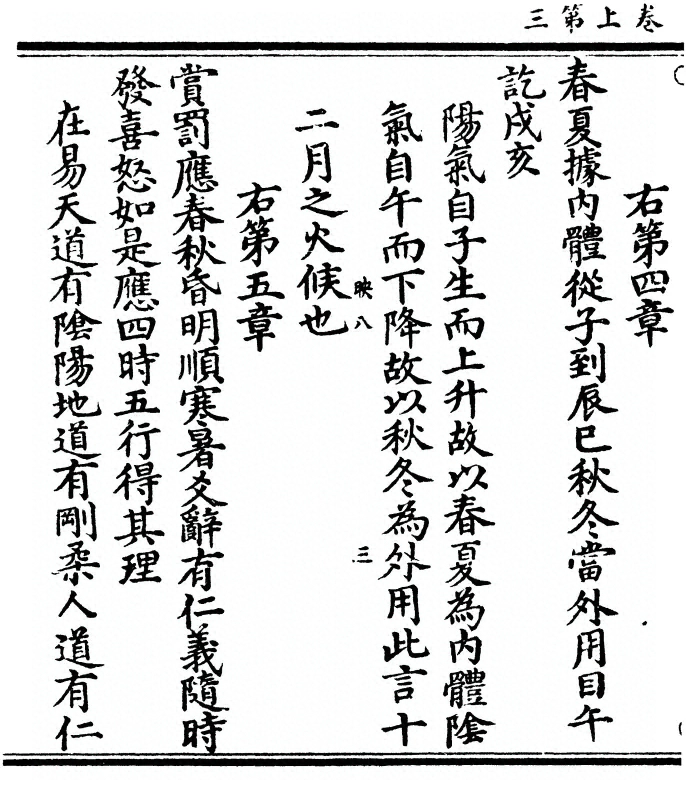 卷上第三
右第四章
春夏據内體從子到辰巳秋冬當外用自午
訖戌亥
陽氣自子生而上升故以春夏為内體陰
氣自午而下降故以秋冬為外用此言十
映八
三
二月之火候也
右第五章
賞罰應春秋昏明順寒暑爻辭有仁義隨時
發喜怒如是應四時五行得其理
在易天道有陰陽地道有剛柔人道有仁